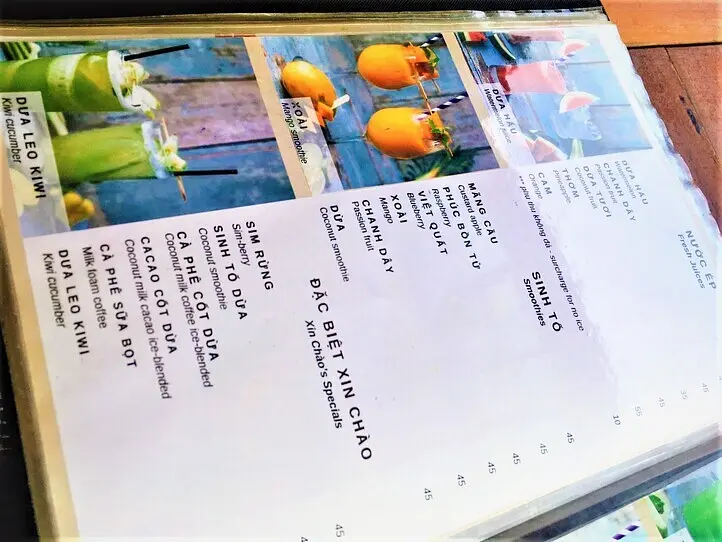 DƯA HẤU
Watermelon juice
XOÀI
Mango smoothie
DƯA LEO KIWI
Kiwi cucumber
NƯỚC ÉP
Fresh Juices
DƯA HẤU
Watermelon
CHANH DÂY 45
Passion fruit
DỪA TƯƠI 35
Coconut fruit
THƠM 45
Pineapple
CAM 55
Orange
*** phụ thu không đá - surcharge for no ice 10
SINH TỐ
Smoothies
MÃNG CẦU 45
Custard apple
PHÚC BỒN TỬ 45
Raspberry
VIỆT QUẤT 45
Blueberry
XOÀI 45
Mango
CHANH DÂY 45
Passion fruit
DỪA 45
Coconut smoothie
ĐẶC BIỆT XIN CHÀO
Xin Chào's Specials
SIM RỪNG 45
Sim-berry
SINH TỐ DỪA
Coconut smoothie
CÀ PHÊ CỐT DỪA
Coconut milk coffee ice-blended
CACAO CỐT DỪA
Coconut milk cacao ice-blended
CÀ PHÊ SỮA BỌT
Milk foam coffee
DƯA LEO KIWI
Kiwi cucumber